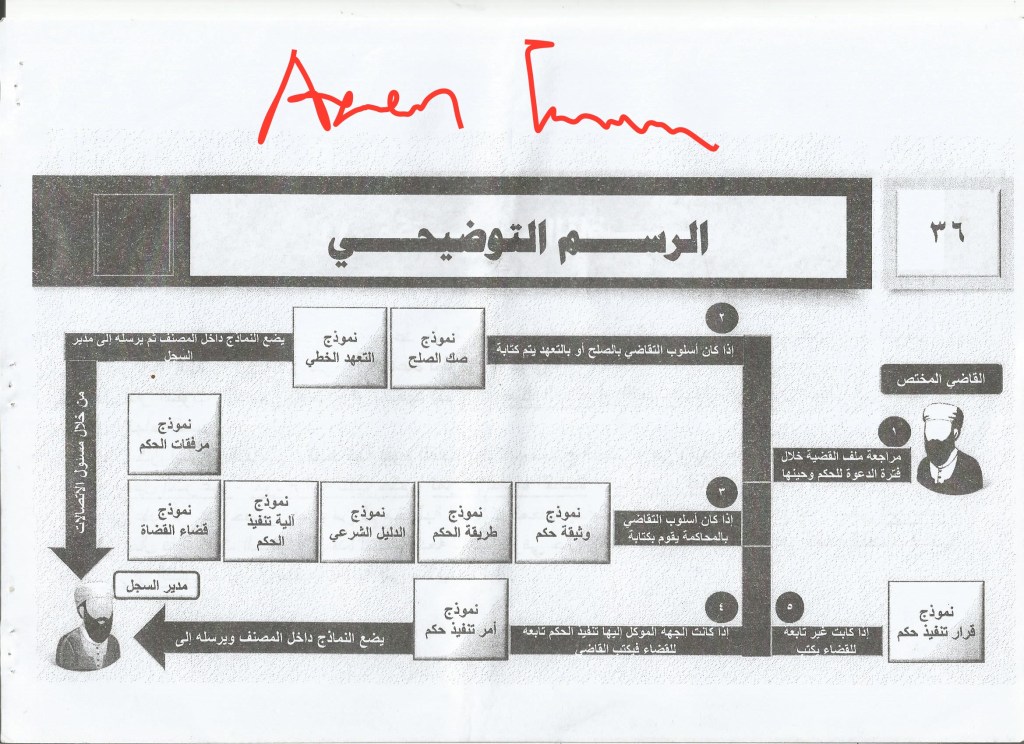 الرسم التوضيحي
٣٦
القاضي المختص
١
مراجعة ملف القضية خلال
فترة الدعوة للحكم وحينها
٢
إذا كان أسلوب التقاضي بالصلح أو بالتعهد يتم كتابة
نموذج
صك الصلح
نموذج
التعهد الخطي
يضع النماذج داخل المصنف ثم يرسله إلى مدير
السجل
من خلال مسئول الاتصالات
٣
إذا كان أسلوب التقاضي
بالمحاكمة يقوم بكتابة
نموذج
وثيقة حكم
نموذج
طريقة الحكم
نموذج
الدليل الشرعي
نموذج
آلية تنفيذ
الحكم
نموذج
قضاء القضاة
نموذج
مرفقات الحكم
٤
إذا كانت الجهه الموكل إليها تنفيذ الحكم تابعه
للقضاء فيكتب القاضي
نموذج
أمر تنفيذ حكم
يضع النماذج داخل المصنف ويرسله إلى
مدير السجل
٥
إذا كانت غير تابعه
للقضاء يكتب
نموذج
قرار تنفيذ حكم